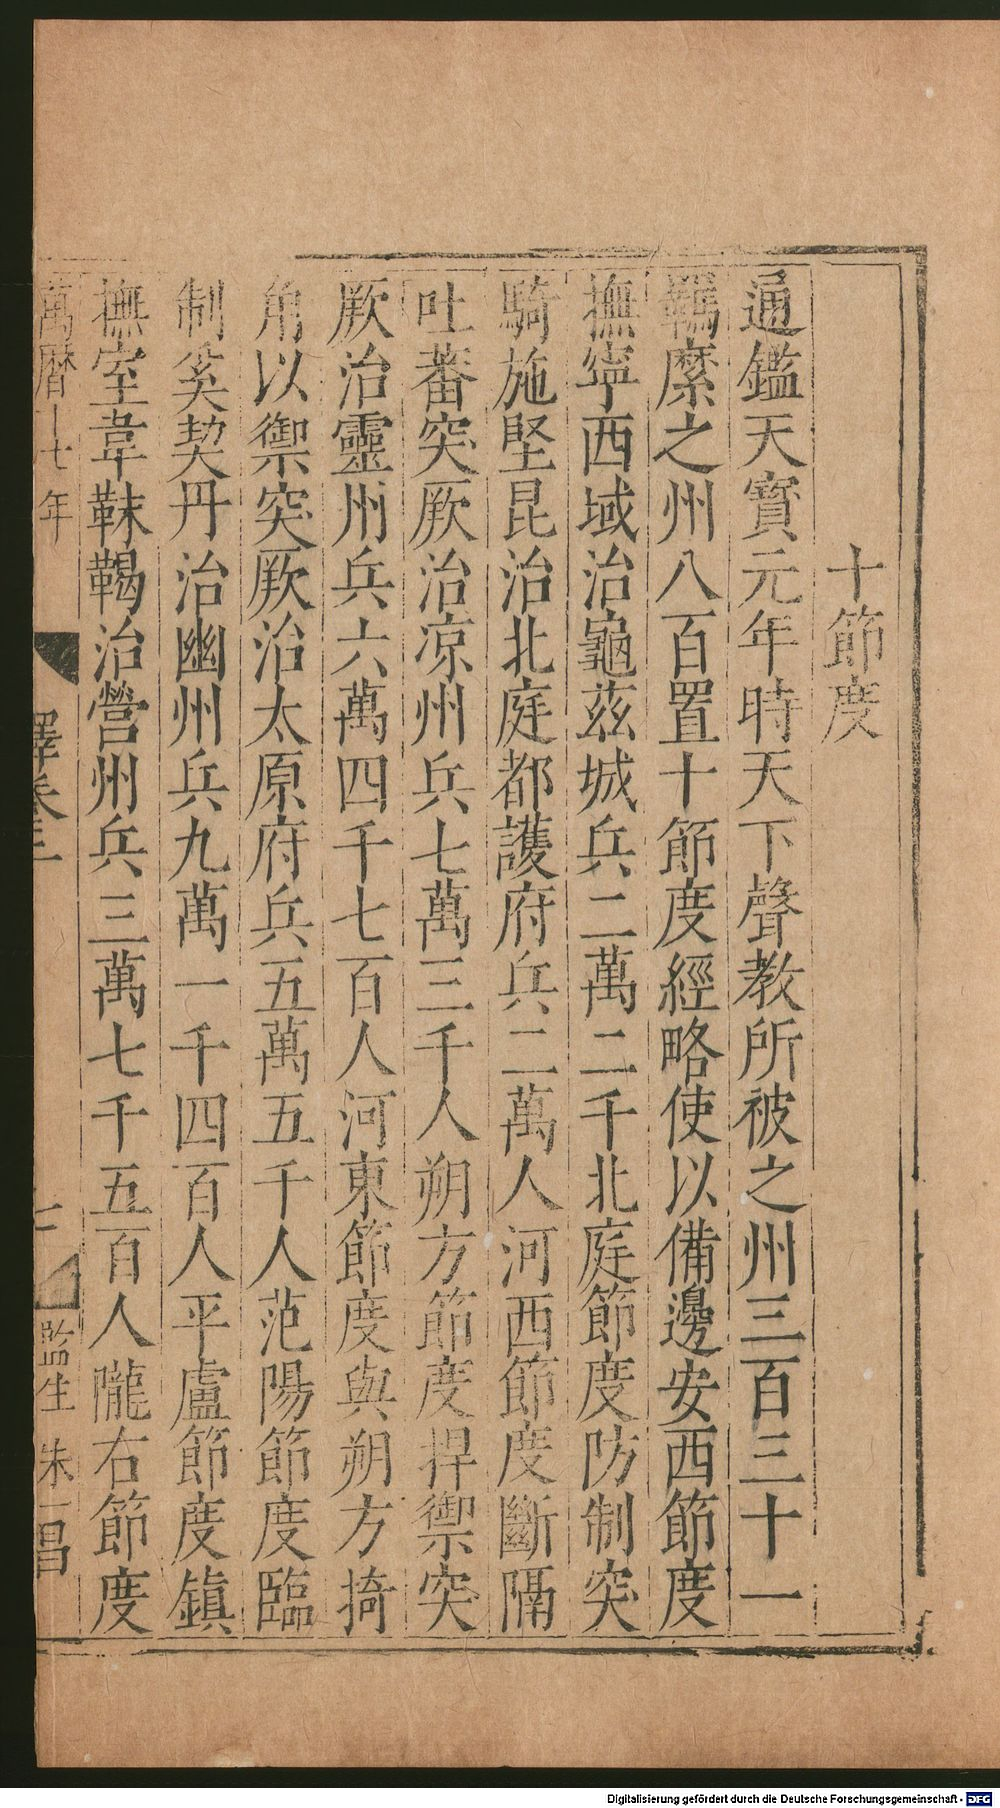 十節度
通鑑天寳元年時天下聲教所被之州三百三十一
羈縻之州八百置十節度經略使以備邊安西節度
撫寜西域治龜玆城兵二萬二千北庭節度防制突
騎施堅昆治北庭都護府兵二萬人河西節度斷隔
吐蕃突厥治凉州兵七萬三千人朔方節度捍禦突
厥治靈州兵六萬四千七百人河東節度與朔方掎
角以禦突厥治太原府兵五萬五千人范陽節度臨
制奚契丹治幽州兵九萬一千四百人平盧節度鎮
撫室韋靺鞨治營州兵三萬七千五百人隴右節度
萬曆十七年 釋卷三 七 監生 朱一昌
Digitalisierung gefördert durch die Deutsche Forschungsgemeinschaft - DFG